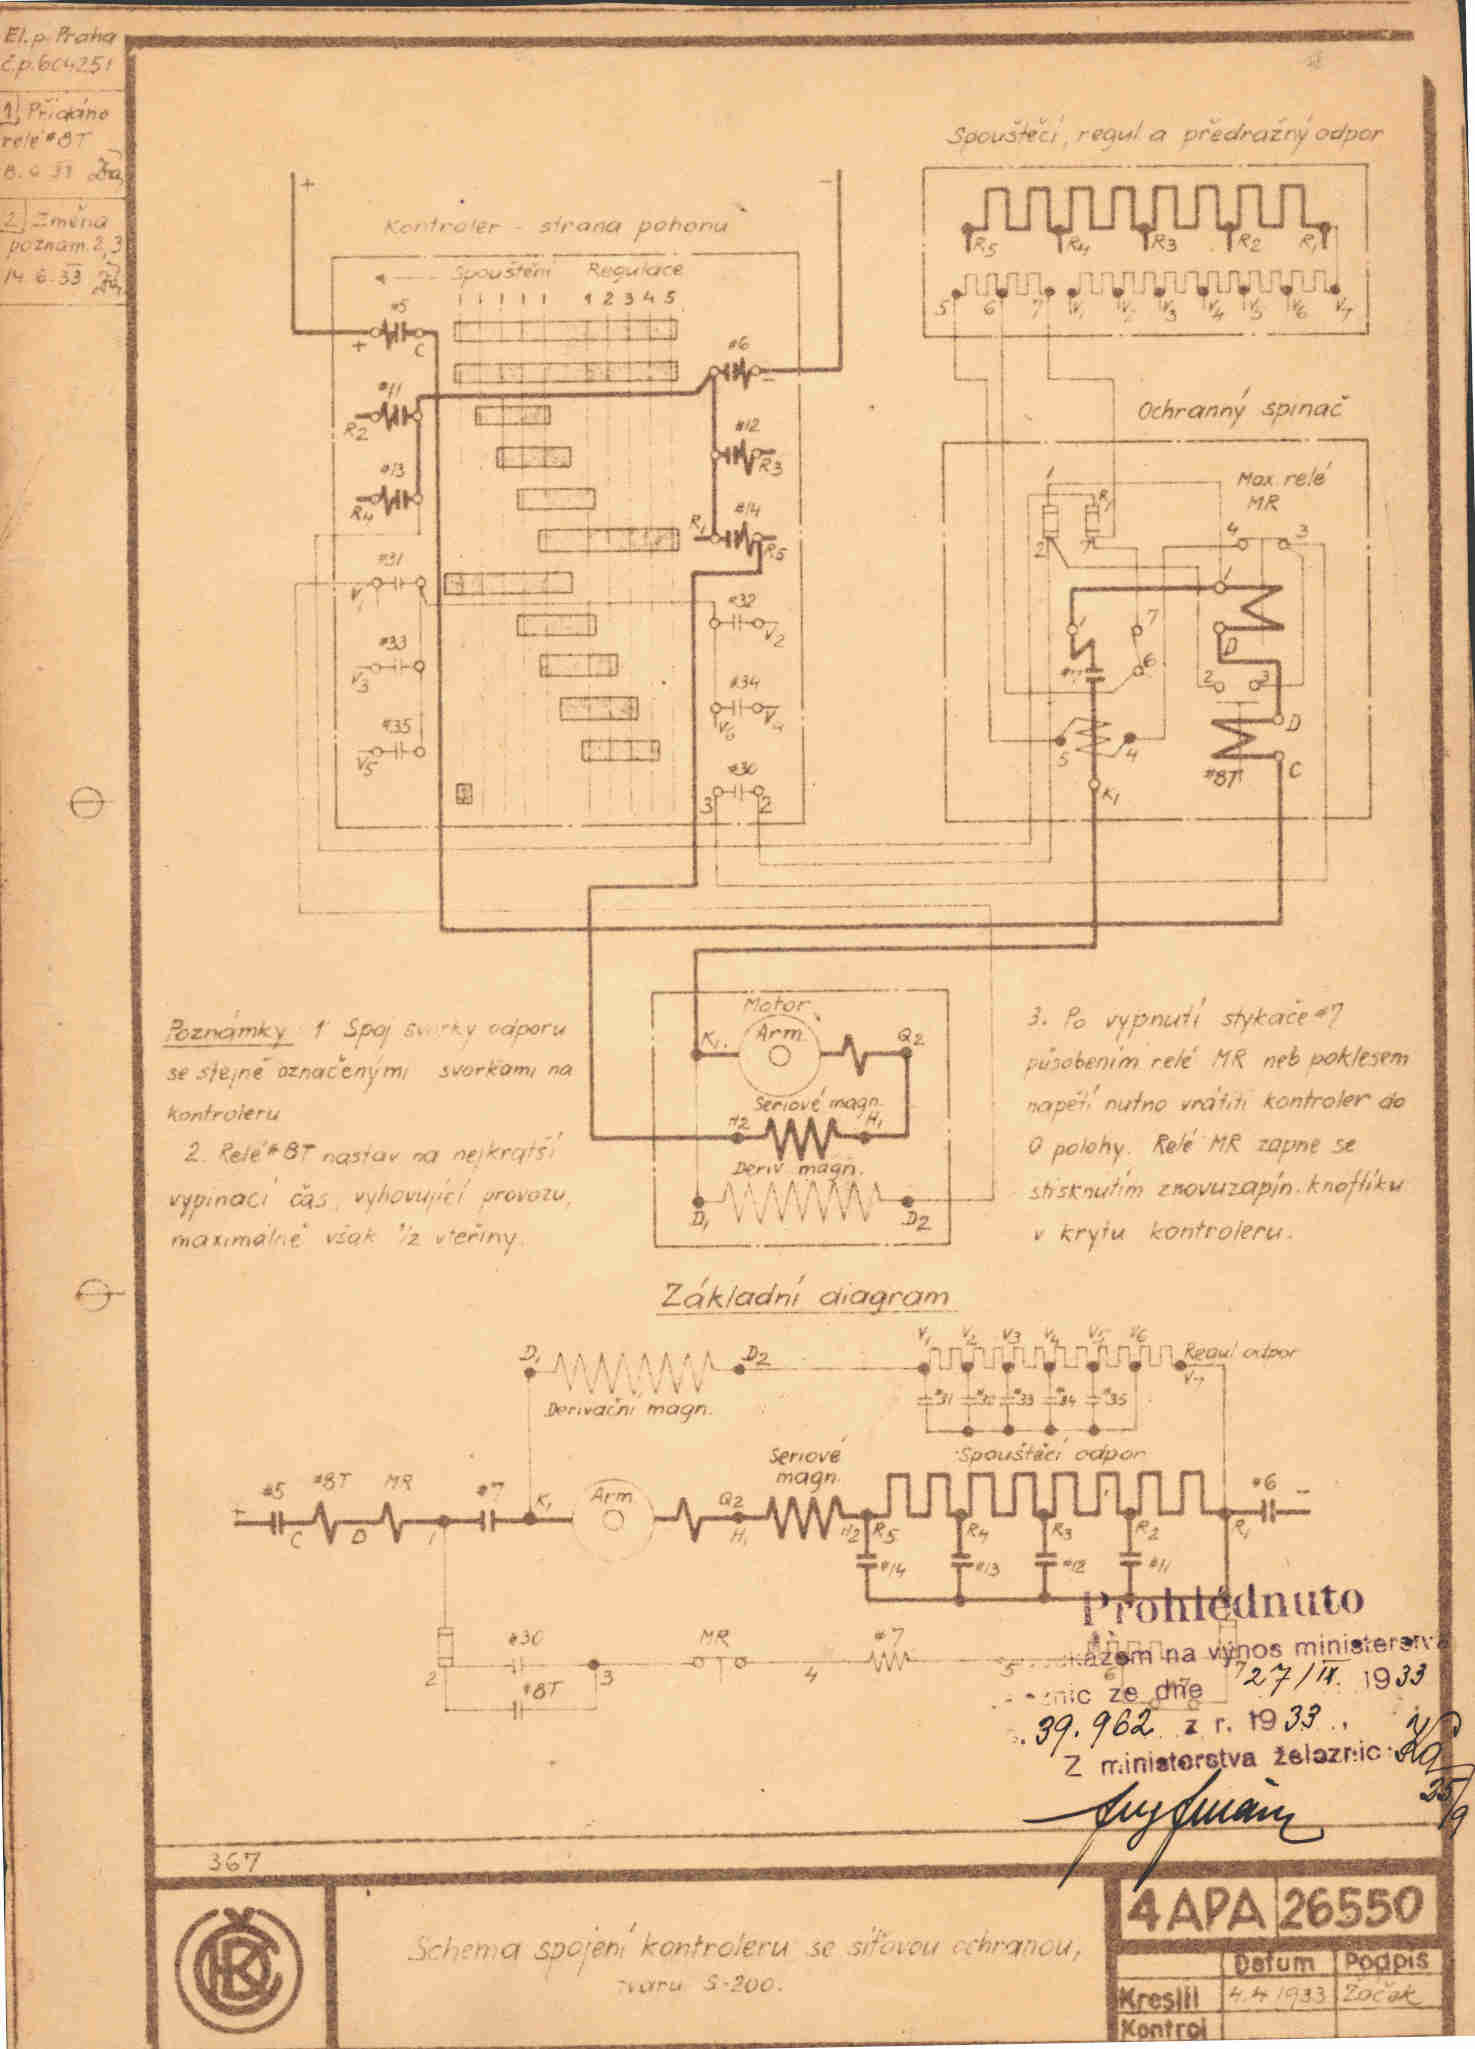 El. p. Praha
č.p. 604251
1 Přidáno
relé #8T
2 Změna
poznám. 2, 3
14. 6. 33
Spouštěcí, regul. a předražný odpor
R5 R4 R3 R2 R1
5 6 7 V1 V2 V3 V4 V5 V6 V7
+ −
Kontroler - strana pohonu
Spouštění Regulace
1 2 3 4 5
#5
+ C
#6
−
#11
R2
#12
R3
#13
R4
#14
R1 R5
#31
V1
#32
V2
#33
V3
#34
V6 V4
#35
V5
#30
3 2
Ochranný spinač
Max. relé
MR
1 R1
2 7
4 3
1
1 7
D
#7 6
2 3
D
5 4
#8T C
K1
Motor
K1 Arm. Q2
Seriové magn.
H2 H1
Deriv. magn.
D1 D2
Poznámky 1 Spoj svorky odporu
se stejně označenými svorkami na
kontroleru
2. Relé #8T nastav na nejkratší
vypínací čas, vyhovující provozu,
maximálně však 1/2 vteřiny.
3. Po vypnutí stykače #7
působením relé MR neb poklesem
napětí nutno vrátiti kontroler do
0 polohy. Relé MR zapne se
stisknutím znovuzapín. knoflíku
v krytu kontroleru.
Základní diagram
D1 D2 V1 V2 V3 V4 V5 V6 Regul. odpor
V7
Derivační magn. #31 #32 #33 #34 #35
Seriové
magn.
Spouštěcí odpor
+ #5 #8T MR #7 K1 Arm. Q2 #6 −
C D 1 H1 H2 R5 R4 R3 R2 R1
#14 #13 #12 #11
#30 MR #7
2 3 4 5 6 7
#8T
Prohlédnuto
na výnos ministerstva
ze dne 27/IX. 1933
39.962 z r. 1933.
Z ministerstva železnic
25/9
367
ČKD
Schema spojení kontroleru se síťovou ochranou,
tvaru S-200.
4APA 26550
Datum Podpis
Kreslil 4.4.1933 Žáček
Kontrol